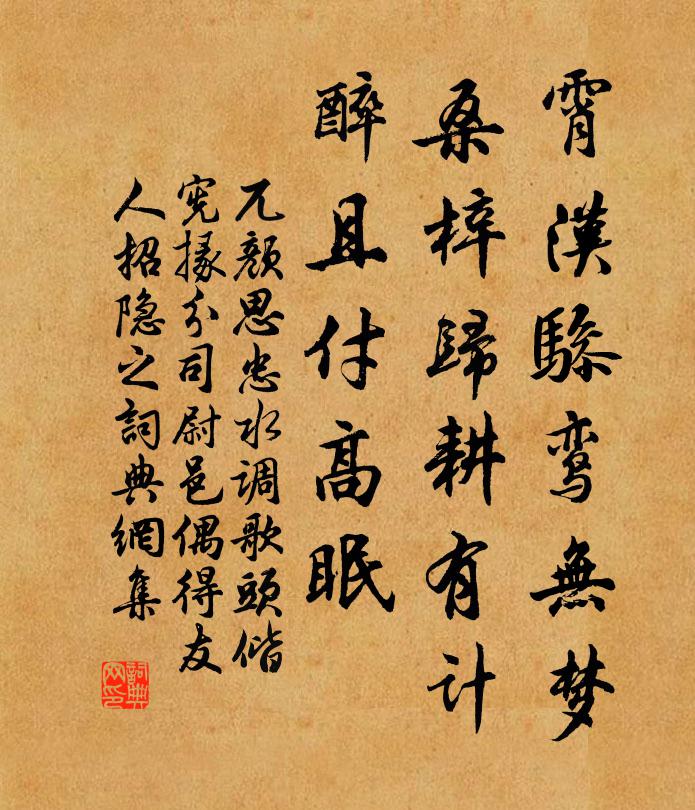 霄漢驂鸾無梦
桑梓歸耕有计
醉且付高眠
兀颜思忠水调歌頭偕
宪掾分司尉邑偶得友
人招隐之詞典網集
詞典网印